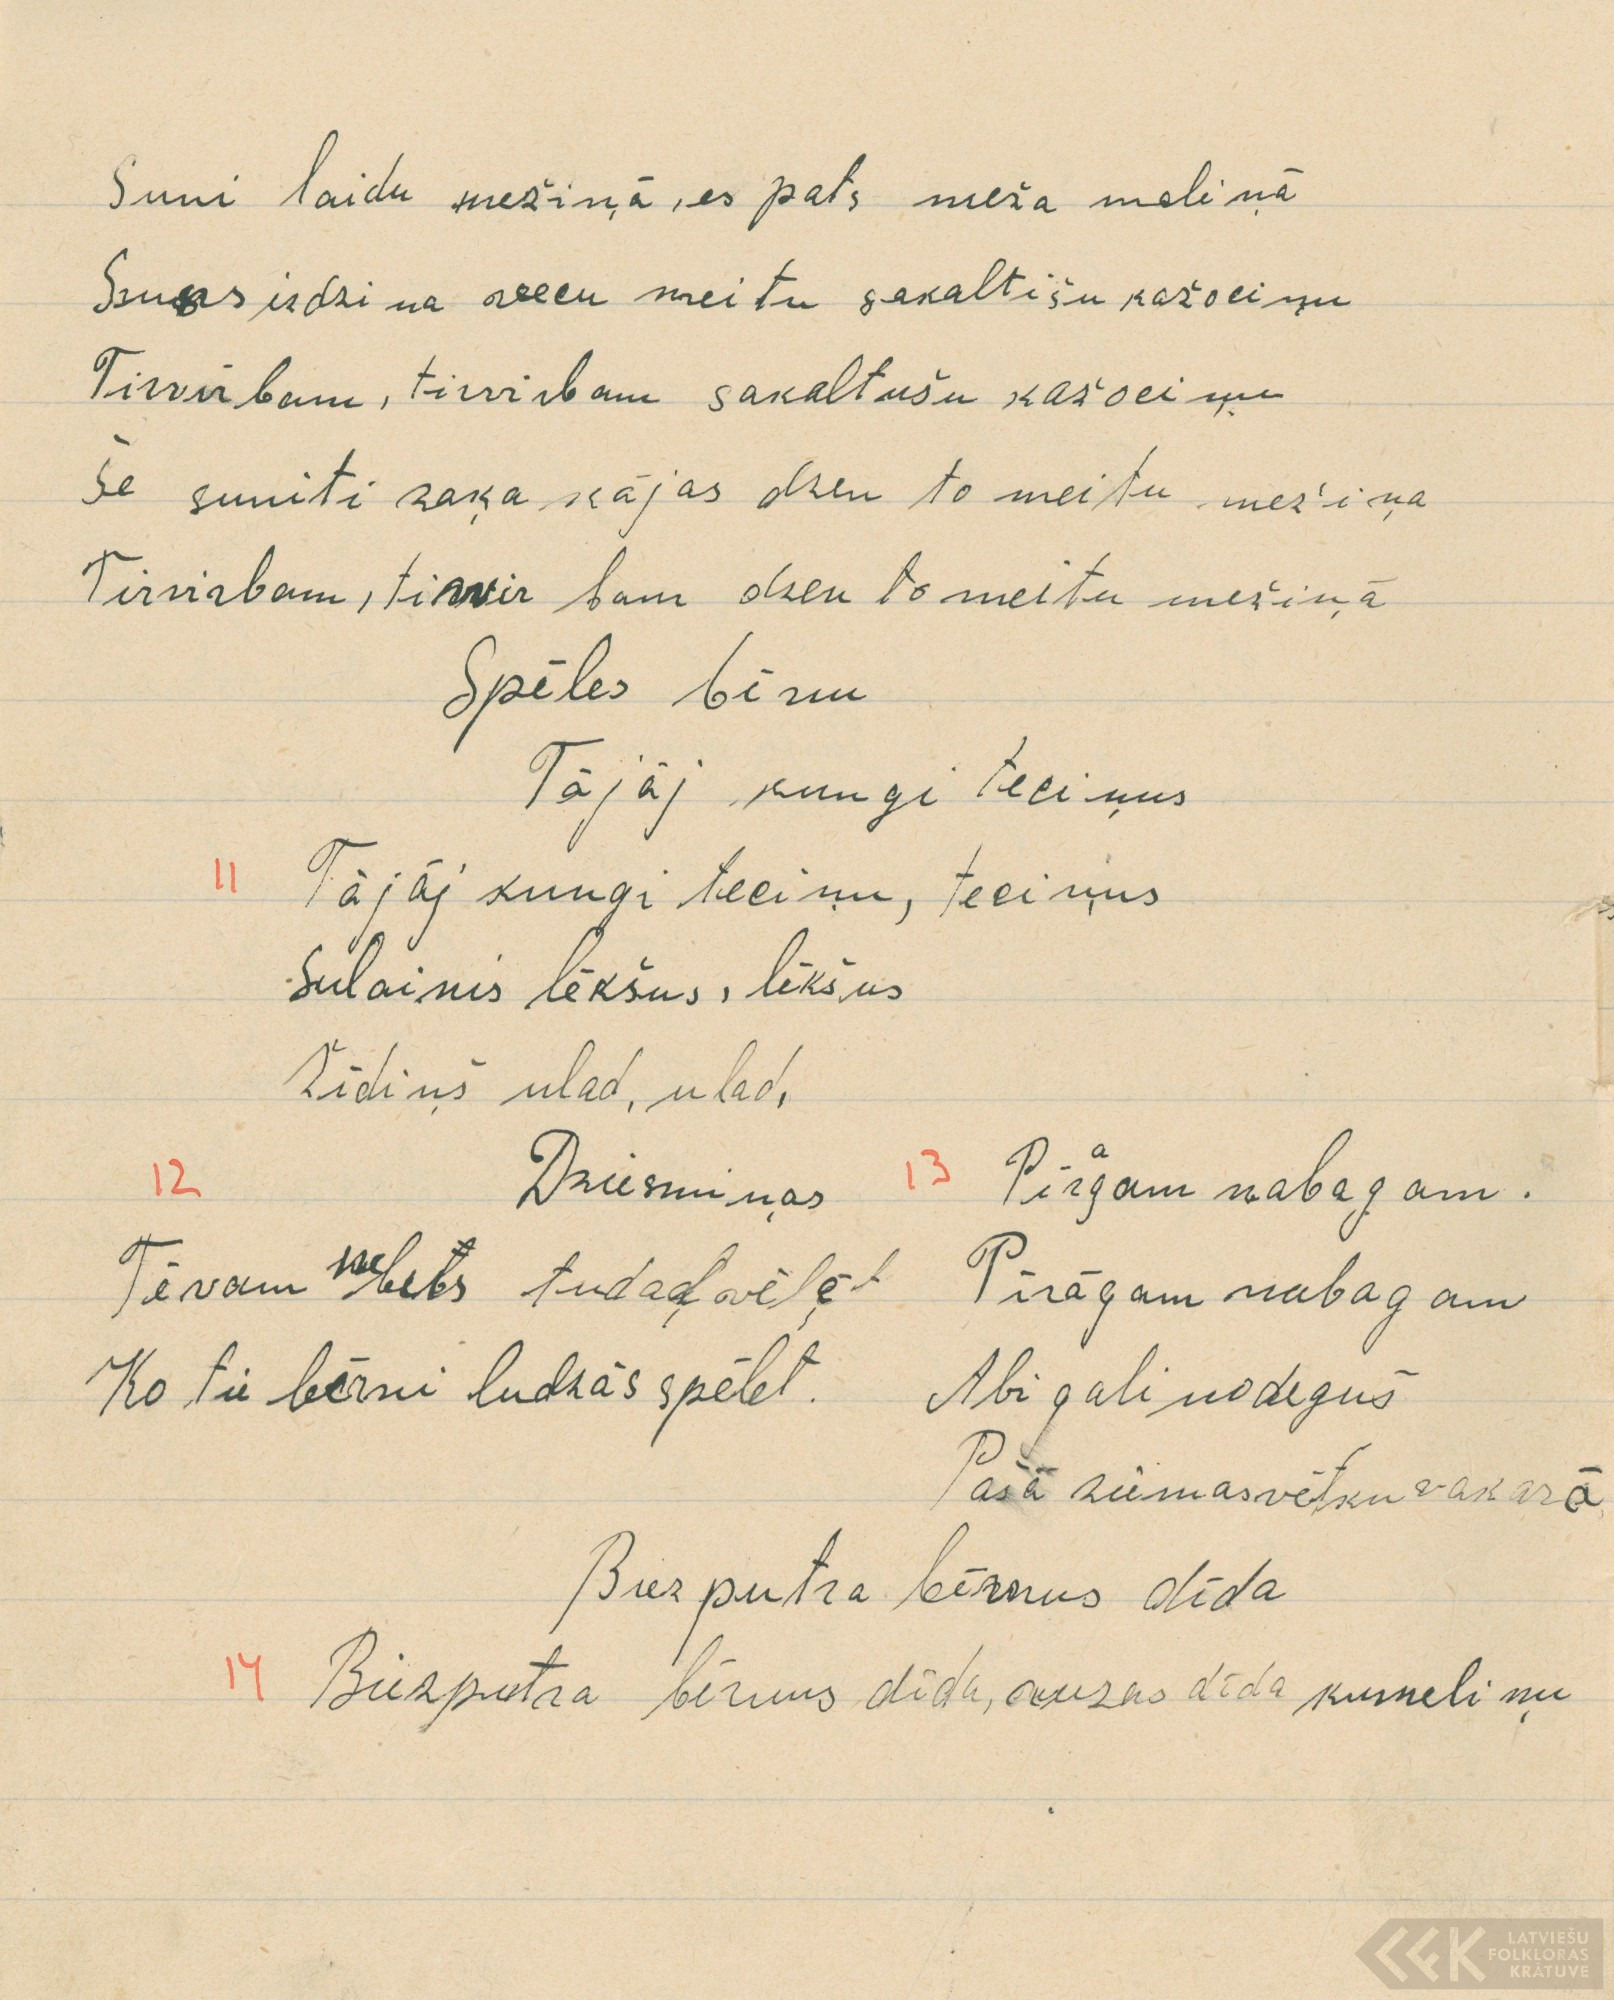 Suni laidu mežiņā, es pats meža maliņā
Suns izdzina vecu meitu sakaltišu kažociņu
Tirvirbam, tirvirbam sakaltušu kažociņu
Še suniti zaķa kājas dzen to meitu mežiņa
Tirvirbam, tirvir bam dzen to meitu mežiņā
Spēles bērnu
Tājāj kungi teciņus
11 Tājāj kungi teciņu, teciņus
Sulainis lēkšus, lēkšus
Žīdiņš ulad, ulad,
12 Dziesmiņas
Tēvam nebēts tudaļ vēlēt
Ko tie bērni ludzās spēlet.
13 Pīrāgam nabagam.
Pīrāgam nabagam
Abi gali nodeguš
Pašā ziemasvētku vakarā
Biezputra bērnus dīda
14 Biezputra bērnus dīda, auzas dīda kumeliņu
LATVIEŠU
FOLKLORAS
KRĀTUVE